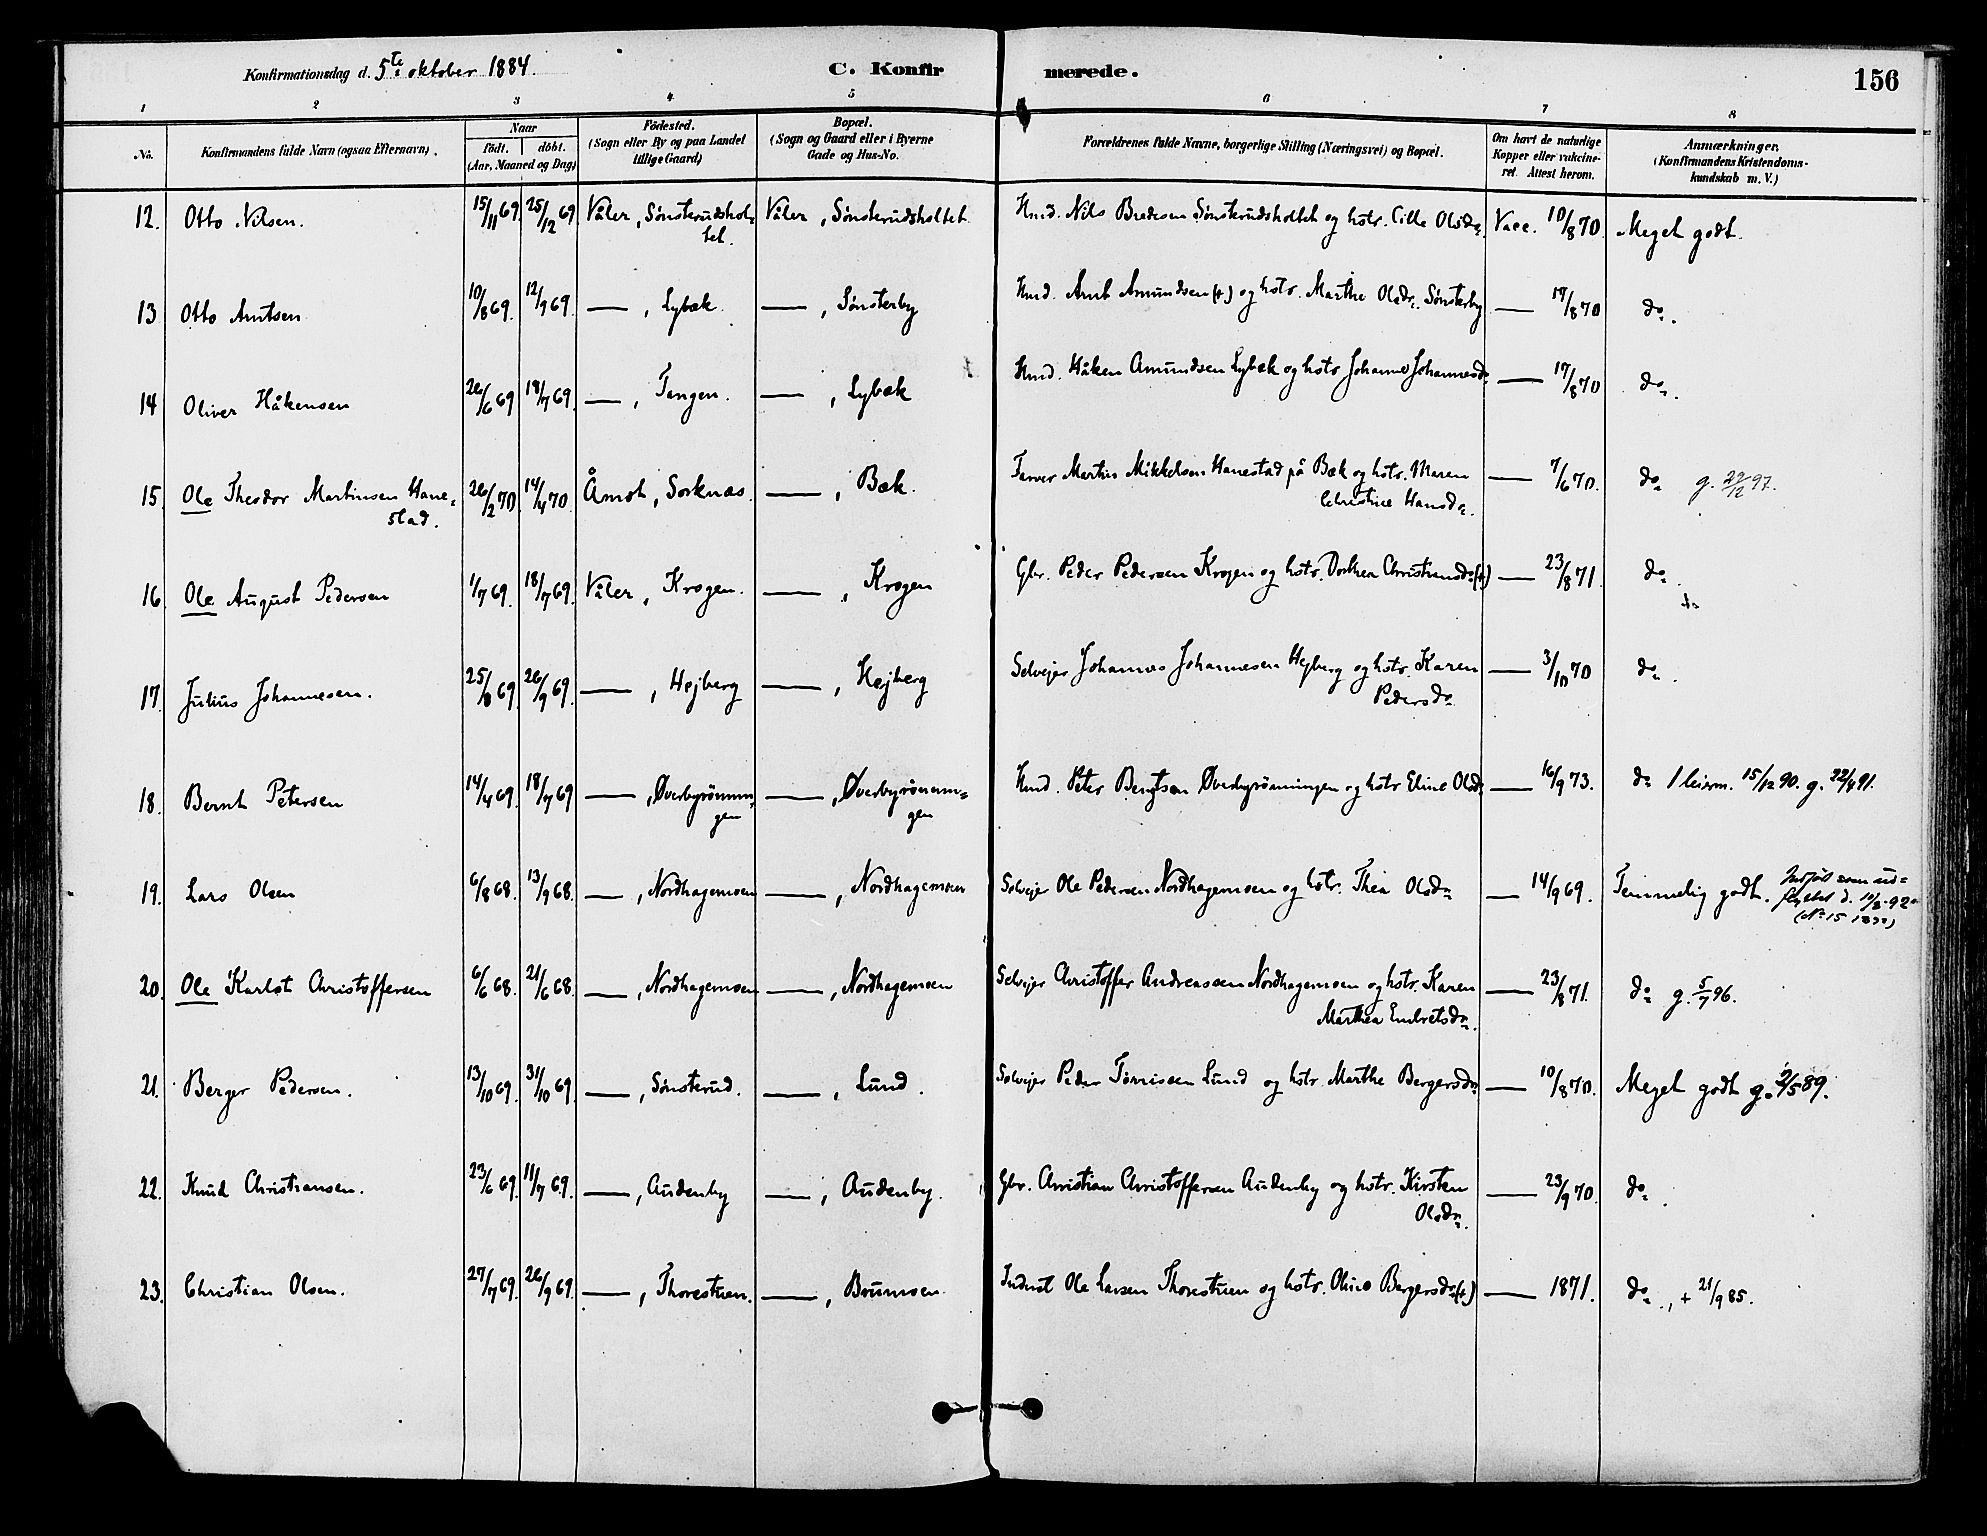 Konfirmationsdag d. 5te oktober 1884.
C. Konfirmerede.
156
1 2 3 4 5 6 7 8
No. Konfirmandens fulde Navn (ogsaa Efternavn). Naar födt. döbt. (Aar, Maaned og Dag) Födested. (Sogn eller By og paa Landet tillige Gaard) Bopæl. (Sogn og Gaard eller i Byerne Gade og Hus-No. Forældrenes fulde Navne, borgerlige Stilling (Næringsvei) og Bopæl. Om havt de naturlige Kopper eller vakcineret. Attest herom. Anmærkninger. (Konfirmandens Kristendomskundskab m. V.)
12. Otto Nilsen. 15/11 69. 25/12 69. Våler, Sønsterudsholtet. Våler, Sønsterudsholtet Hmd. Nils Bredesen Sønsterudsholtet og hstr. Cille Olsdr. Vacc. 10/8 70. Meget godt.
13 Otto Arntsen 10/8 69. 12/9 69. — , Lybæk. — , Sønsterby Hmd. Arnt Amundsen (+) og hstr. Marthe Olsdr. Sønsterby — 17/8 70 do.
14 Oliver Håkensen 26/6 69 18/7 69. — , Tangen. — , Lybæk Hmd. Håken Amundsen Lybæk og hstr Johanne Johannesdr — 17/8 70 do.
15. Ole Theodor Martinsen Hanestad. 26/2 70 14/4 70. Åmot, Sorknæs. — , Bæk. Martin Mikkelsen Hanestad på Bæk og hstr. Maren Christine Hansdr. — 7/6 70. do g. 29/12 97.
16. Ole August Pedersen 1/7 69. 18/7 69. Våler, Krogen. — , Krogen Gbr. Peder Pedersen Krogen og hstr. Dorthea Christiansdr (+) — 23/8 71. do.
17. Julius Johannesen. 25/8 69. 26/9 69. — , Hejberg — , Hejberg Selvejer Johannes Johannesen Hejberg og hstr. Karen Pedersdr — 3/10 70 do.
18. Bernt Petersen 14/4 69. 18/7 69 — , Øverbyrønningen — , Øverbyrønningen Hmd. Peter Bengtsen Øverbyrønningen og hstr Eline Olsdr — 16/9 73. do 1 leierm. 15/12 90. g. 22/4 91.
19. Lars Olsen 6/8 68. 13/9 68. — , Nordhagemoen — , Nordhagemoen Selvejer Ole Pedersen Nordhagemoen og hstr. Thea Olsdr — 14/9 69. Temmelig godt. Indført som udflyttet d. 11/3 92 (No 15 1892)
20. Ole Karlot Christoffersen 6/6 68. 21/6 68. — , Nordhagemoen — , Nordhagemoen Selvejer Christoffer Andreassen Nordhagemoen og hstr. Karen Marthea Embretsdr. — 23/8 71. do g. 5/7 96.
21. Berger Pedersen. 13/10 69. 31/10 69. — , Sønsterud. — , Lund. Selvejer Peder Tørrissen Lund og hstr. Marthe Bergersdr — 10/8 70. Meget godt g. 2/5 89.
22. Knud Christiansen. 23/6 69. 11/7 69. — , Audenby — , Audenby. Gbr. Christian Christoffersen Audenby og hstr. Kirsten Olsdr. — 23/9 70. do.
23. Christian Olsen. 27/7 69. 26/9 69. — , Thorestuen. — , Brumoen. Inderst Ole Larsen Thorestuen og hstr. Oline Bergersdr (+) — 1871. do., + 21/9 85.